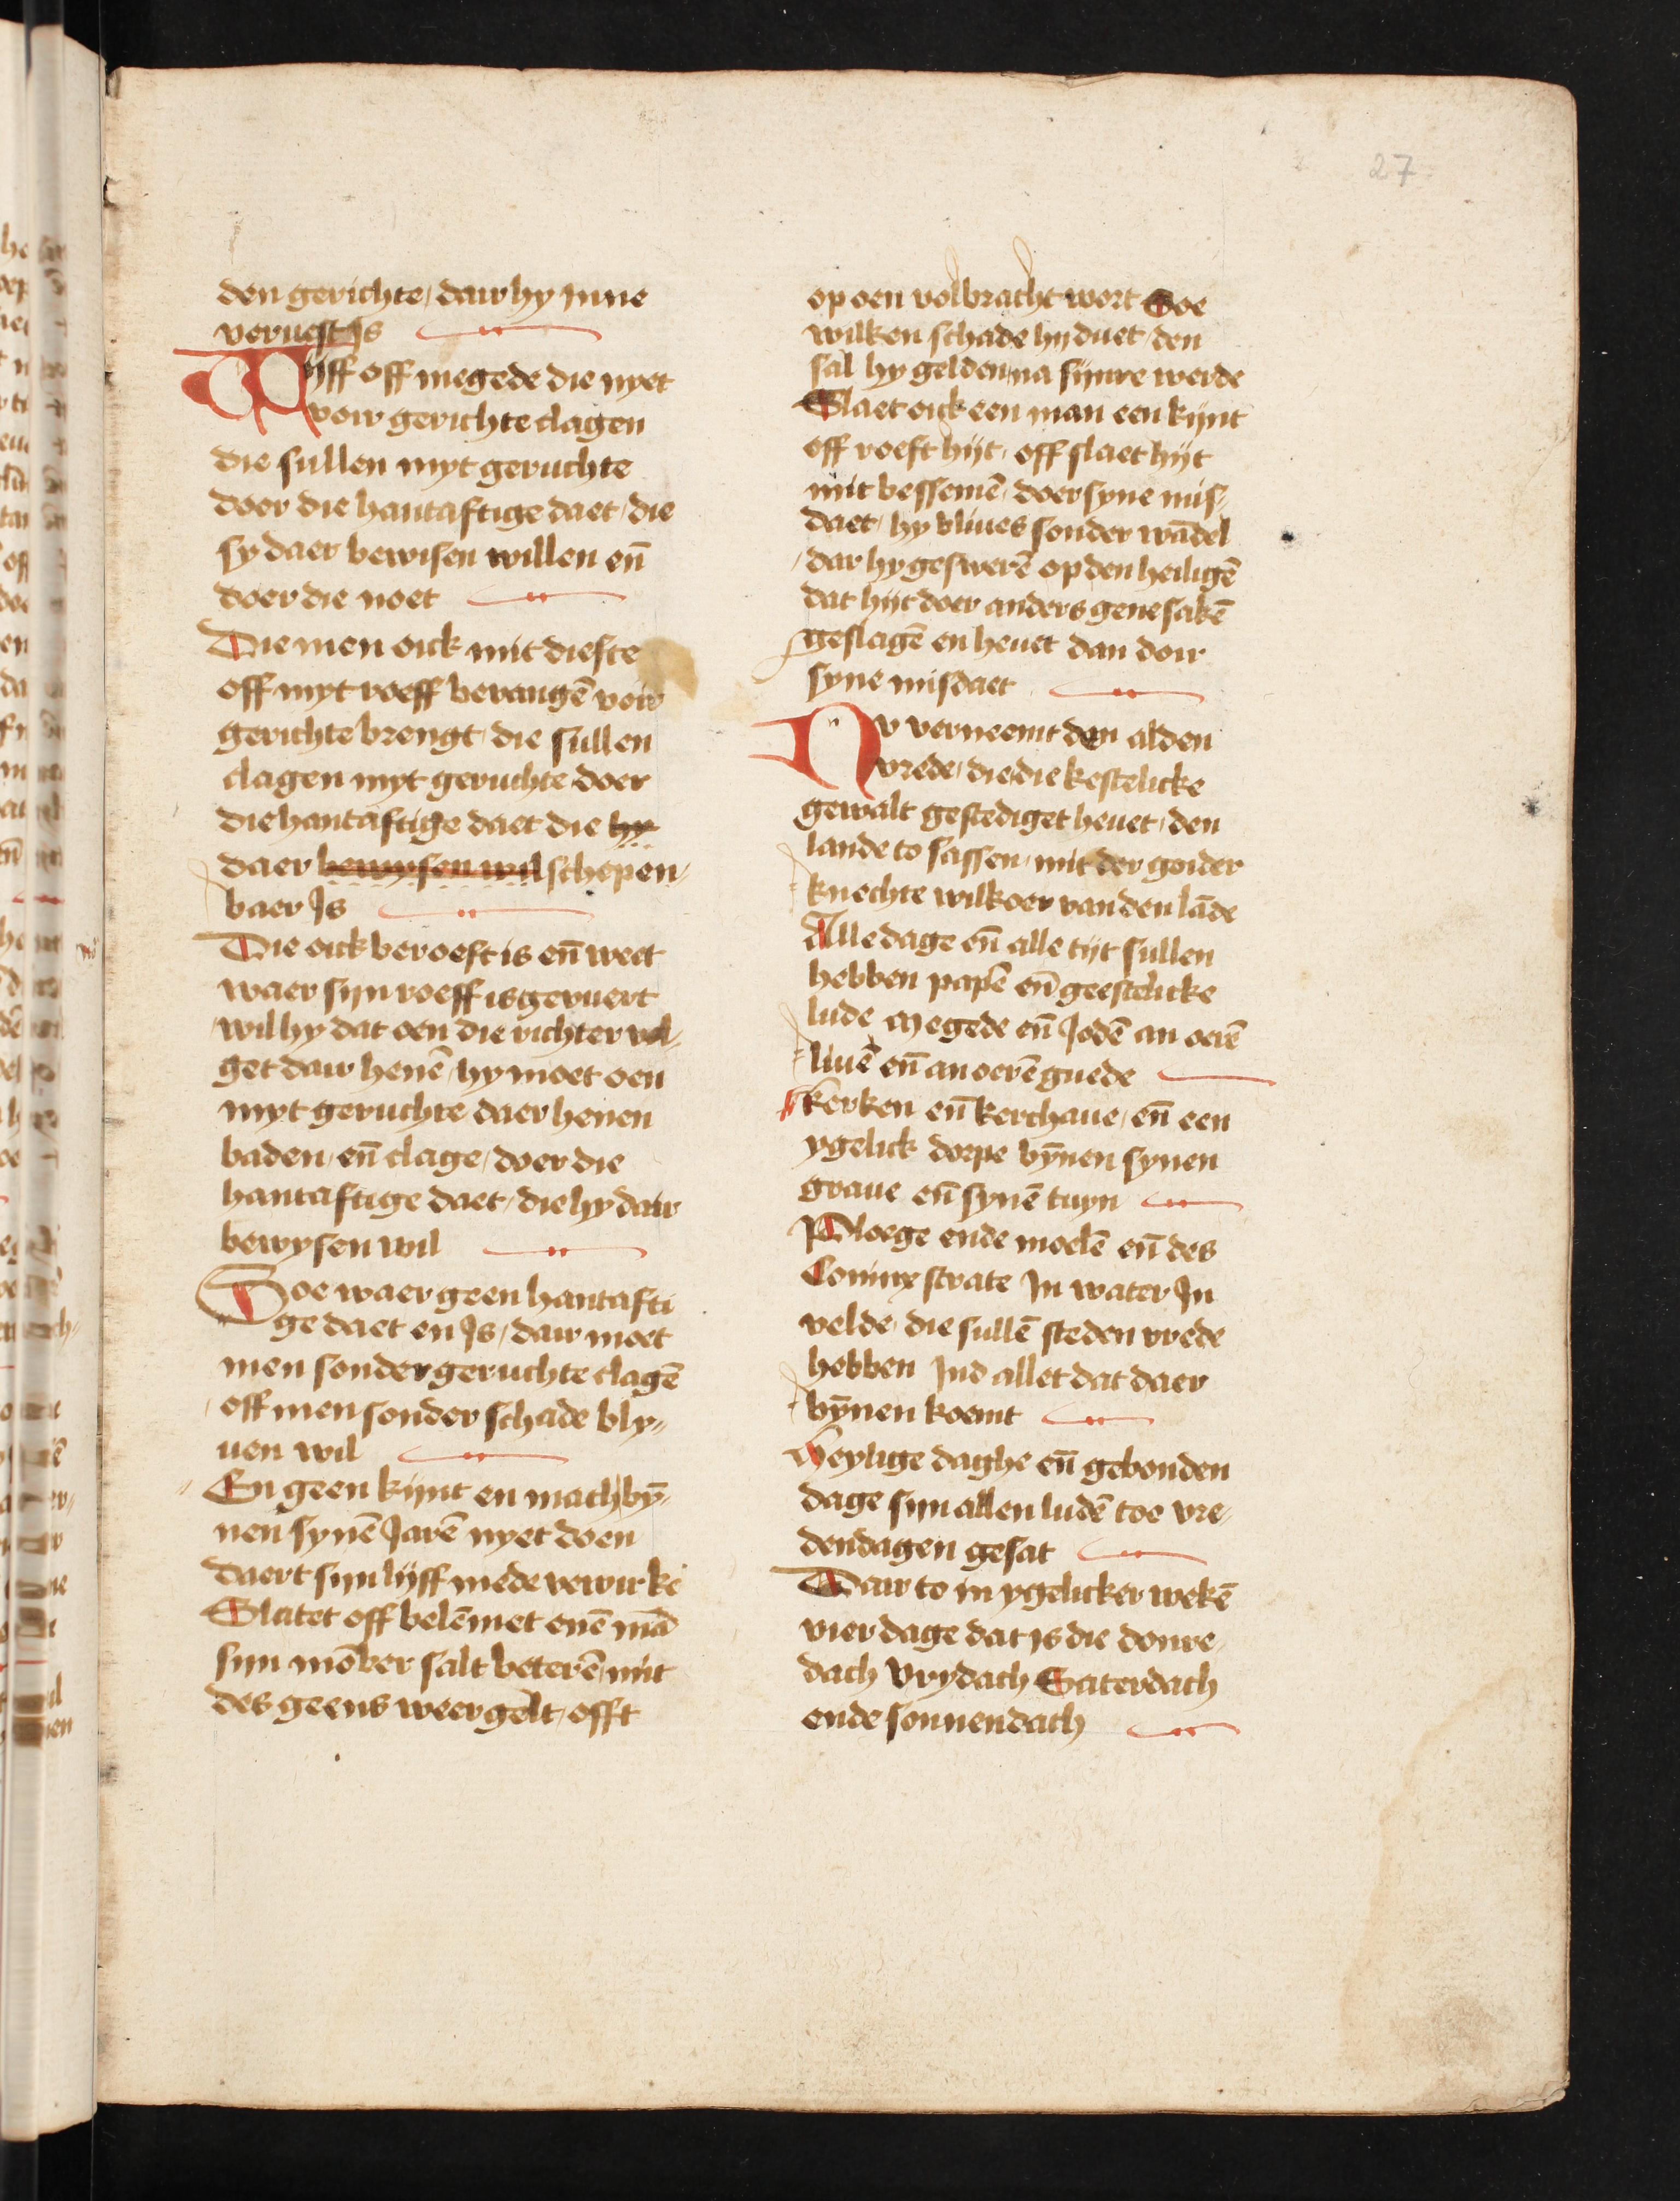 27
den gerichte / dair hy Inne
veruest Is
Wijff off megede die nyet
voir gerichte clagen
die sullen myt geruchte
doer die hantaftige daet / die
sy daer bewisen willen en̄
doer die noet
Die men oick mit diefte
off myt roeff bevangē voir
gerichte brengt / die sullen
clagen myt geruchte doer
die hantaftige daet die hy
daer bewysen wil schepen⸗
baer Is
Die oick beroeft is en̄ weet
waer sijn roeff is gevuert
wil hy dat oen die richter vol⸗
get dair henē / hy moet oen
myt geruchte daer henen
baden / en̄ clage / doer die
hantaftige daet / die hy dair
bewysen wil
Soe waer geen hantafti
ge daet en Is / dair moet
men sonder geruchte clagē
off men sonder schade bly⸗
uen wil
En geen kijnt en mach bȳ⸗
nen synē Jarē nyet doen
daert sijn lijff mede verwirke
Slatet off belēmet enē mā
sijn mōber salt beterē / mit
des geens weergelt / offt
op oen volbracht wort Soe
wilken schade hij duet / den
sal hy gelden / na sijnre werde
Slaet oick een man een kijnt
off roeft hijt / off slaet hijt
mit bessemē / doer syne mis⸗
daet / hy bliues sonder wādel
/ dar hy geswerē op den heiligē
dat hijt doer anders gene sakē
geslagē en heuet dan doir
syne misdaet
Nv verneemt den alden
vrede / die die kestelicke
gewalt gestediget heuet / den
lande to sassen / mit der goider
knechte wilkoer van den lāde
Alle dage en̄ alle tijt sullen
hebben papē en̄ geestelicke
lude megede en̄ Jodē an oerē
liuē en̄ an oerē guede
kerken en̄ kerchaue / en̄ een
ygelick dorpe bȳnen synen
graue en̄ synē tuyn
Ploege ende moelē en̄ des
Coninx strate In water In
velde / die sullē steden vrede
hebben Ind allet dat daer
bȳnen koemt
Heylige daghe en̄ gebonden
dage sijn allen ludē toe vre⸗
dendagen gesat
Dair to in ygelicker wekē
vier dage dat is die donre⸗
dach Vrydach Saterdach
ende sonnendach